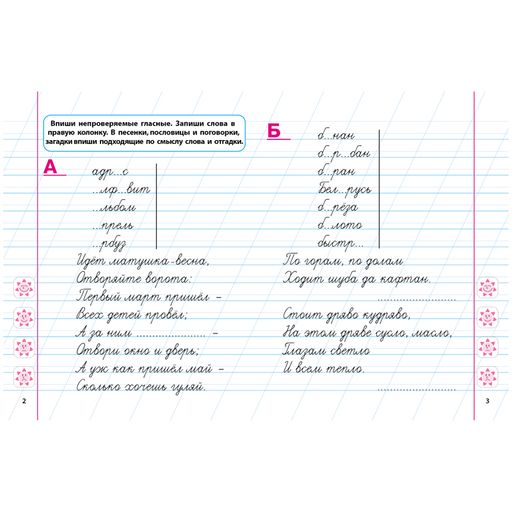 Впиши непроверяемые гласные. Запиши слова в
правую колонку. В песенки, пословицы и поговорки,
загадки впиши подходящие по смыслу слова и отгадки.
А
адр...с
...лф...вит
...льбом
...прель
...рбуз
Идёт матушка-весна,
Отворяйте ворота:
Первый март пришёл –
Всех детей провёл;
А за ним ........................ –
Отвори окно и дверь;
А уж как пришёл май –
Сколько хочешь гуляй.
2
Б
б...нан
б...р...бан
б...ран
Бел...русь
б...рёза
б...лото
быстр...
По горам, по долам
Ходит шуба да кафтан.
..............................
Стоит дряво кудряво,
На этом дряве сусло, масло,
Глазам светло
И всем тепло.
..............................
3